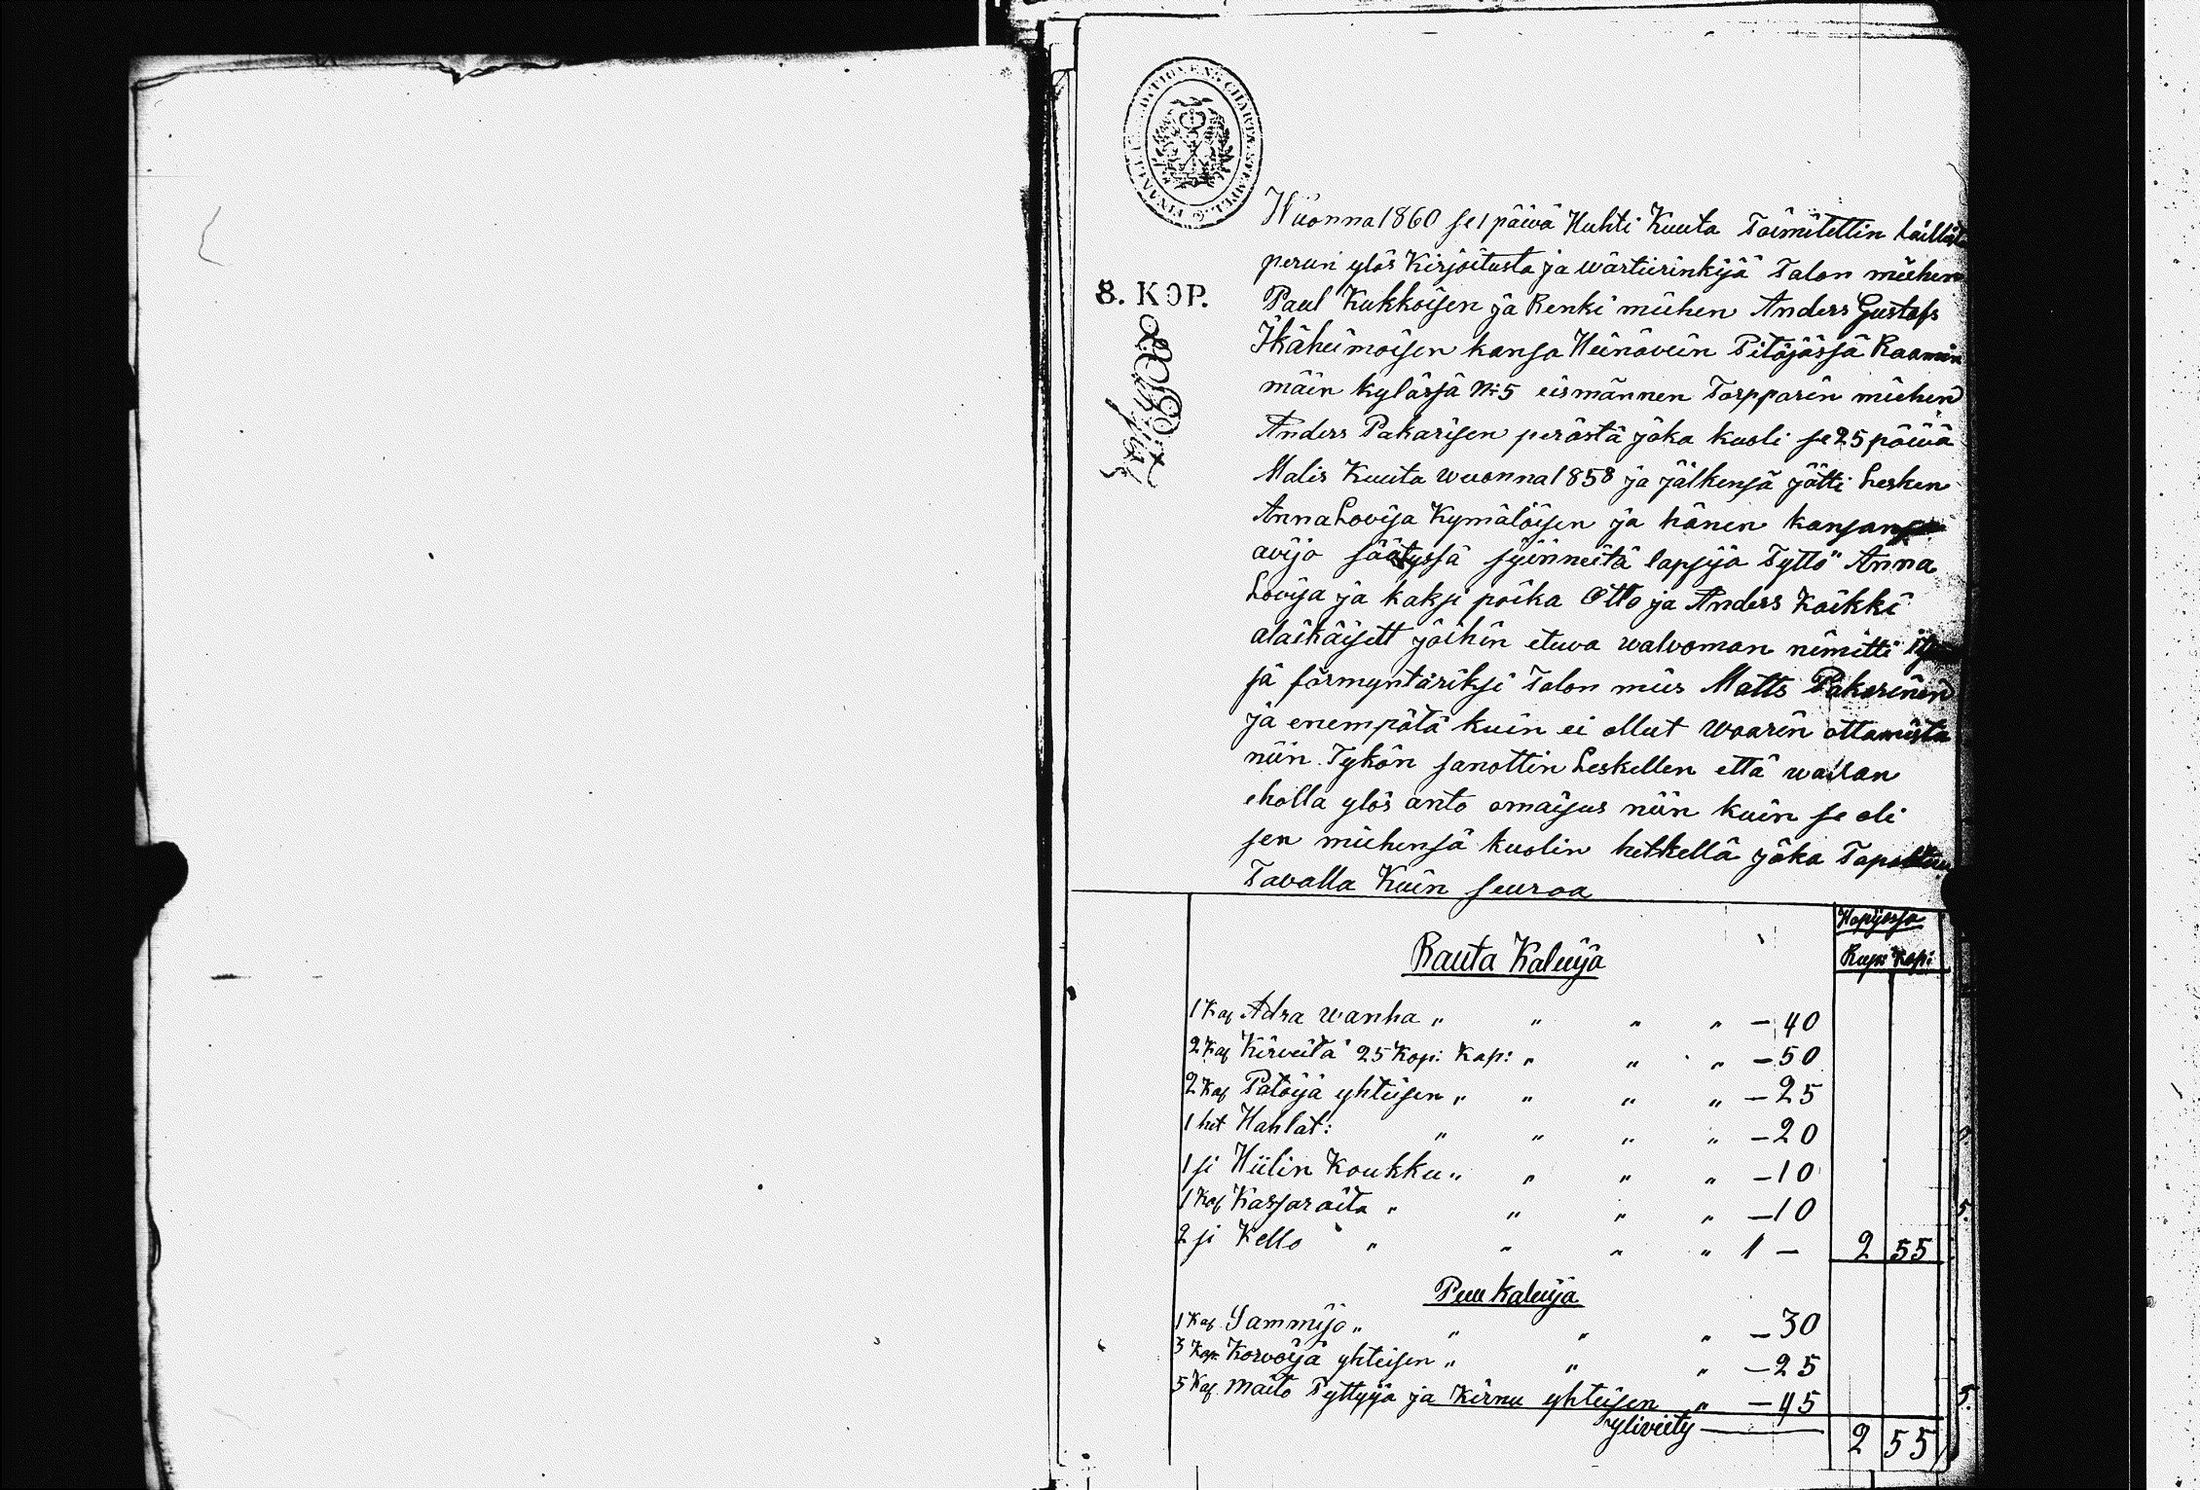 CHARTÆ STEMPEL
8. KOP.
Wuonna 1860 se 1 päivä Huhti Kuuta Toimitettin laillista
perun ylös Kirjoitusta ja wärtierinkijä Talon miehen
Paul Kukkoisen ja Renki miehen Anders Gustafs
Ikäheimoisen kansa Heinävein Pitäjässä Raamin
mäin kylässä No 5 eismännen Torpparin miehen
Anders Pakarisen perästä joka kuoli se 25 päivä
Malis Kuuta wuonna 1858 ja jälkensä jätti Lesken
Anna Lovisa Kymäläisen ja hänen kansansa
avijo säätyssä syinneitä lapsija Tyttö Anna
Lovisa ja kaksi poika Otto ja Anders Kaikki
alaikäisett joihin etuva walvoman nimitti
ja förmyntäriksi Talon mies Matts Pakarinen
ja enempätä kuin ei ollut waarin ottamista
niin Tykön sanottin Leskellen että wallan
eholla ylös anto omaisus niin kuin se oli
sen miehensä kuolin hetkellä joka
Tavalla Kuin seuraa
Hopijassa
Rupl Kopi
Rauta Kaluija
1 Kap Adra wanha " " " " – 40
2 Kap Kirveitä 25 Kop: Kap: " " " – 50
2 Kap Patoija yhteisen " " " " – 25
1 het Hahlat: " " " " – 20
1 si Hiilin Koukku " " " " – 10
1 Kap Kassaraita " " " " – 10
2 si Kello " " " " 1 – 2 55
Puu Kaluija
1 Kap Sammijo " " " " – 30
3 Kap. Korvoija yhteisen " " " – 25
5 Kap Maito Pyttyjä ja Kirnu yhteisen " – 45
yliviety 2 55